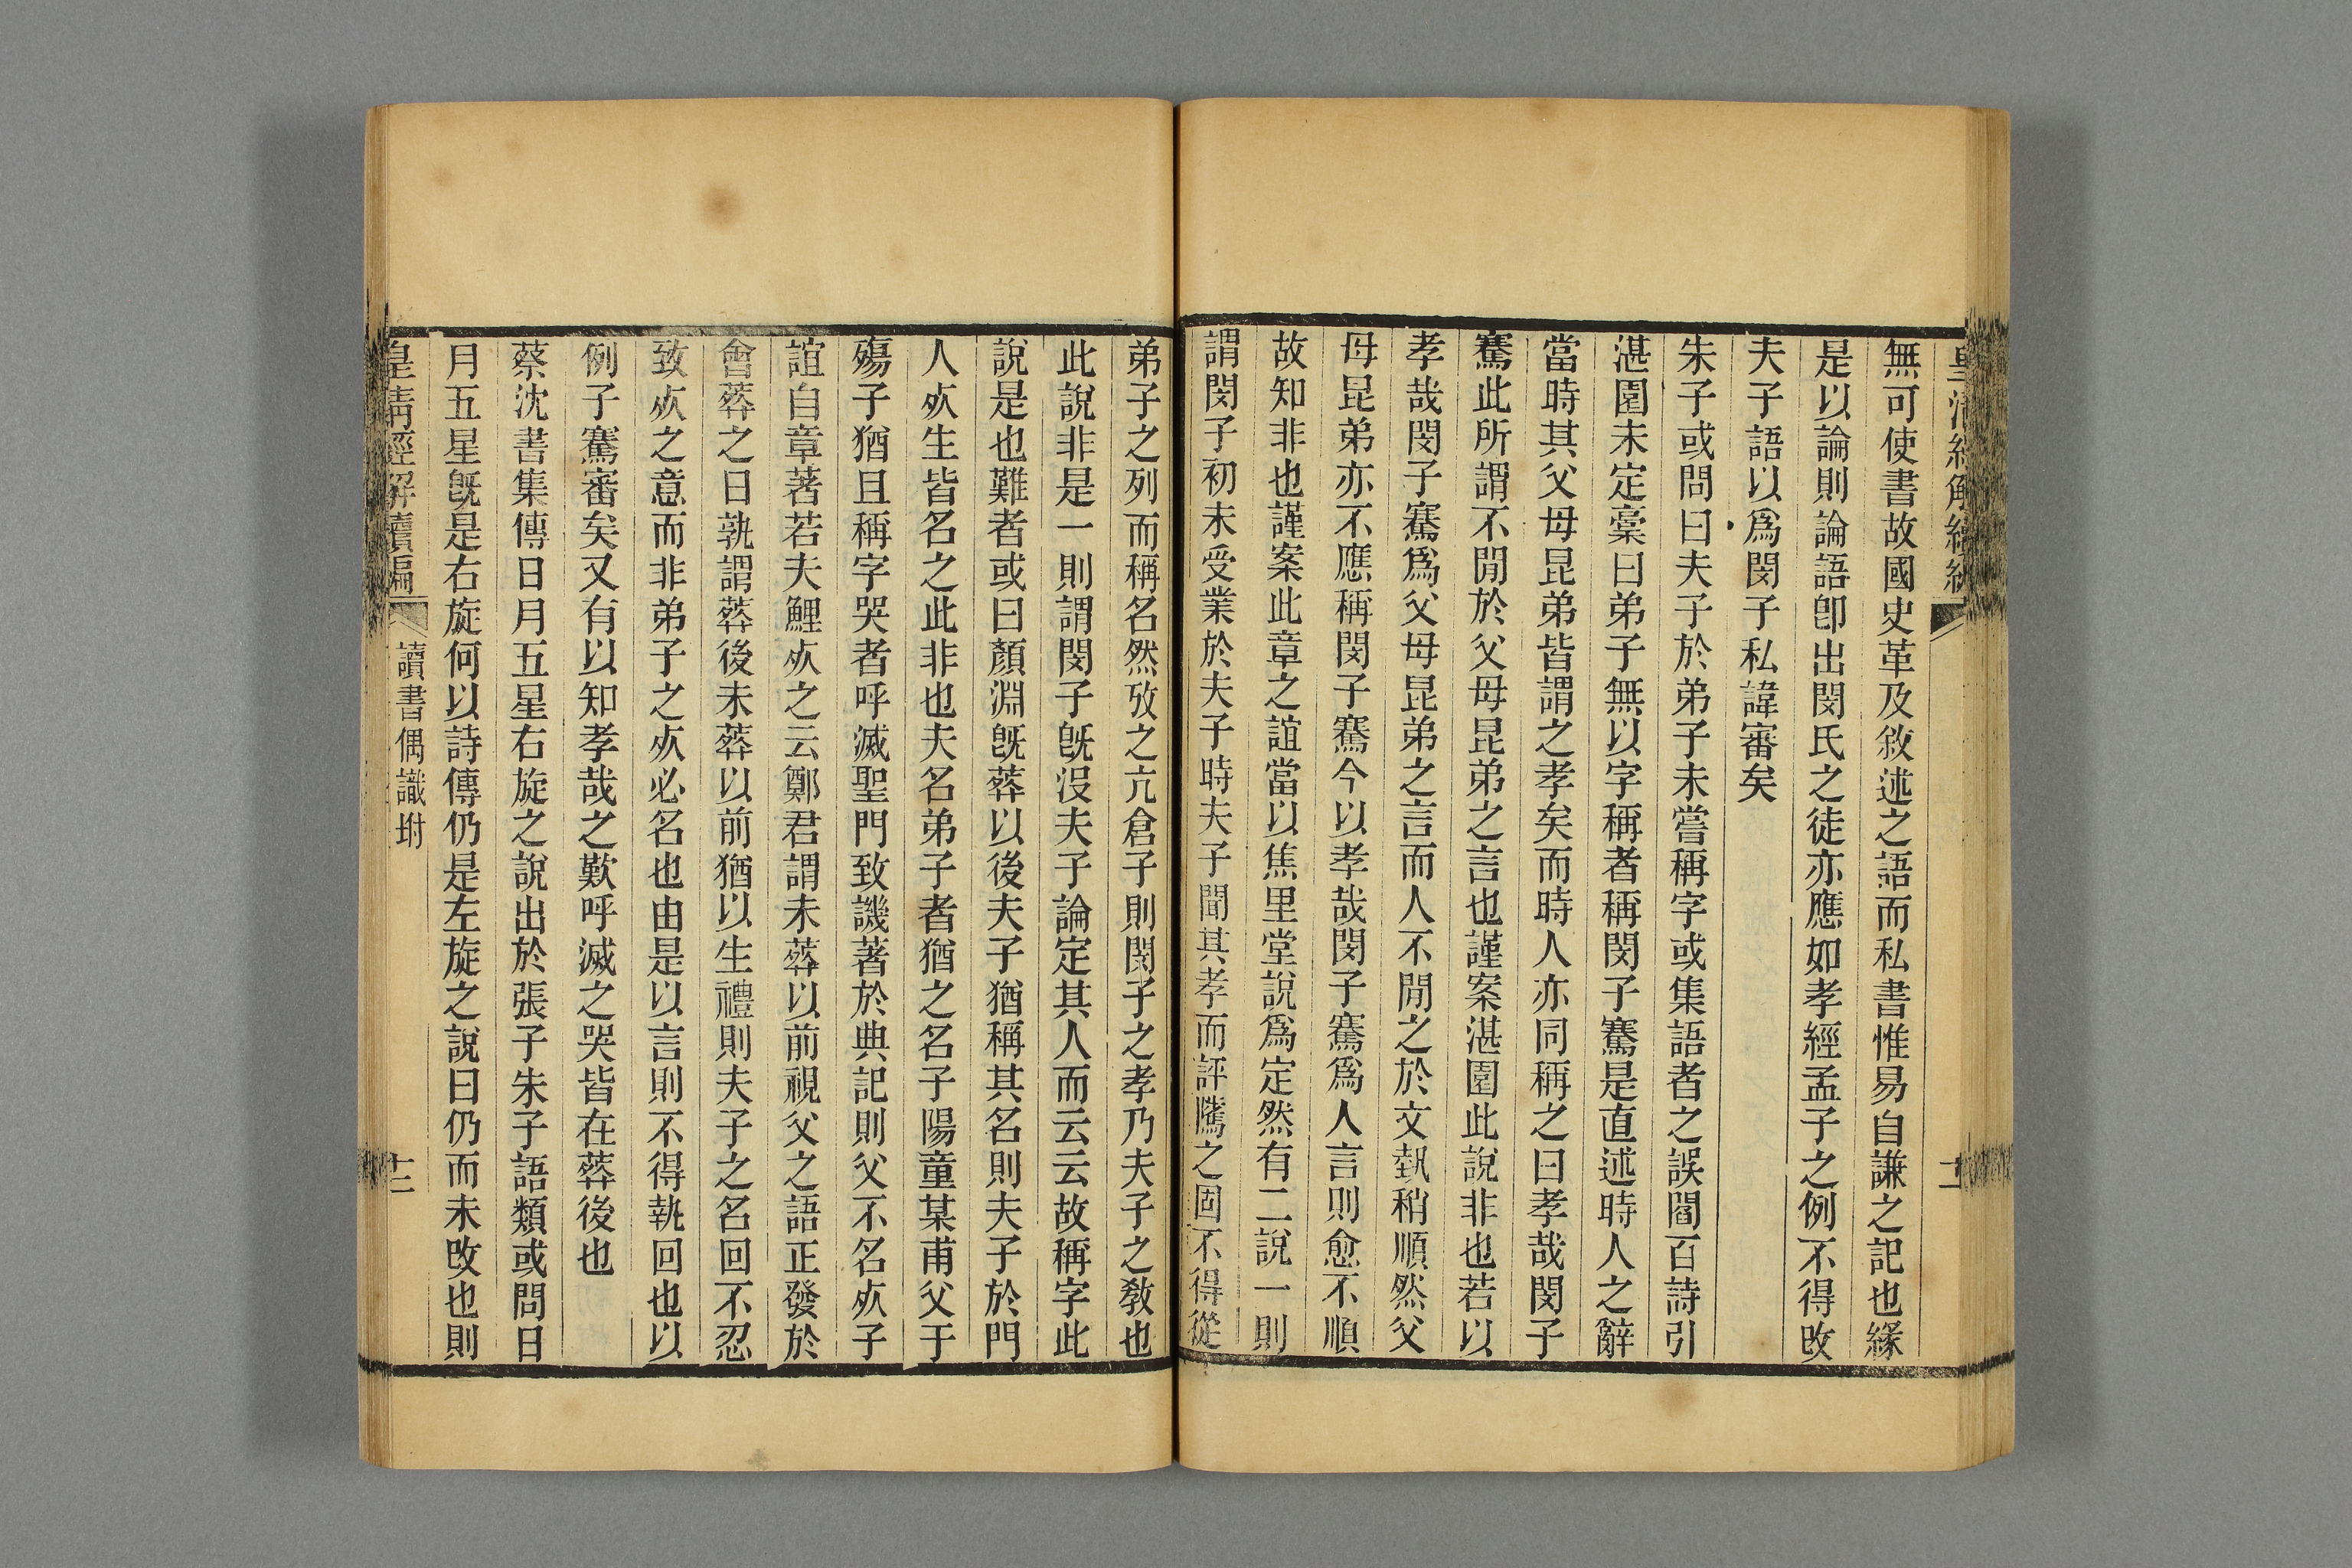 無可使書故國史革及敘述之語而私書惟易自謙之記也緣
是以論則論語卽出閔氏之徒亦應如孝經孟子之例不得攺
夫子語以爲閔子私諱審矣
朱子或問曰夫子於弟子未嘗稱字或集語者之誤閻百詩引
湛園未定稾曰弟子無以字稱者稱閔子騫是直述時人之辭
當時其父母昆弟皆謂之孝矣而時人亦同稱之曰孝哉閔子
騫此所謂不閒於父母昆弟之言也謹案湛園此說非也若以
孝哉閔子騫爲父母昆弟之言而人不閒之於文埶稍順然父
母昆弟亦不應稱閔子騫今以孝哉閔子騫爲人言則愈不順
故知非也謹案此章之誼當以焦里堂說爲定然有二說一則
謂閔子初未受業於夫子時夫子聞其孝而評騭之固不得從
弟子之列而稱名然攷之亢倉子則閔子之孝乃夫子之敎也
此說非是一則謂閔子旣沒夫子論定其人而云云故稱字此
說是也難者或曰顏淵旣葬以後夫子猶稱其名則夫子於門
人㱙生皆名之此非也夫名弟子者猶之名子陽童某甫父于
殤子猶且稱字哭者呼滅聖門致譏著於典記則父不名㱙子
誼自章著若夫鯉㱙之云鄭君謂未葬以前視父之語正發於
會葬之日孰謂葬後未葬以前猶以生禮則夫子之名回不忍
致㱙之意而非弟子之㱙必名也由是以言則不得執回也以
例子騫審矣又有以知孝哉之歎呼滅之哭皆在葬後也
蔡沈書集傳日月五星右旋之說出於張子朱子語類或問日
月五星旣是右旋何以詩傳仍是左旋之說曰仍而未攺也則
皇淸經解續編
讀書偶識坿
十二